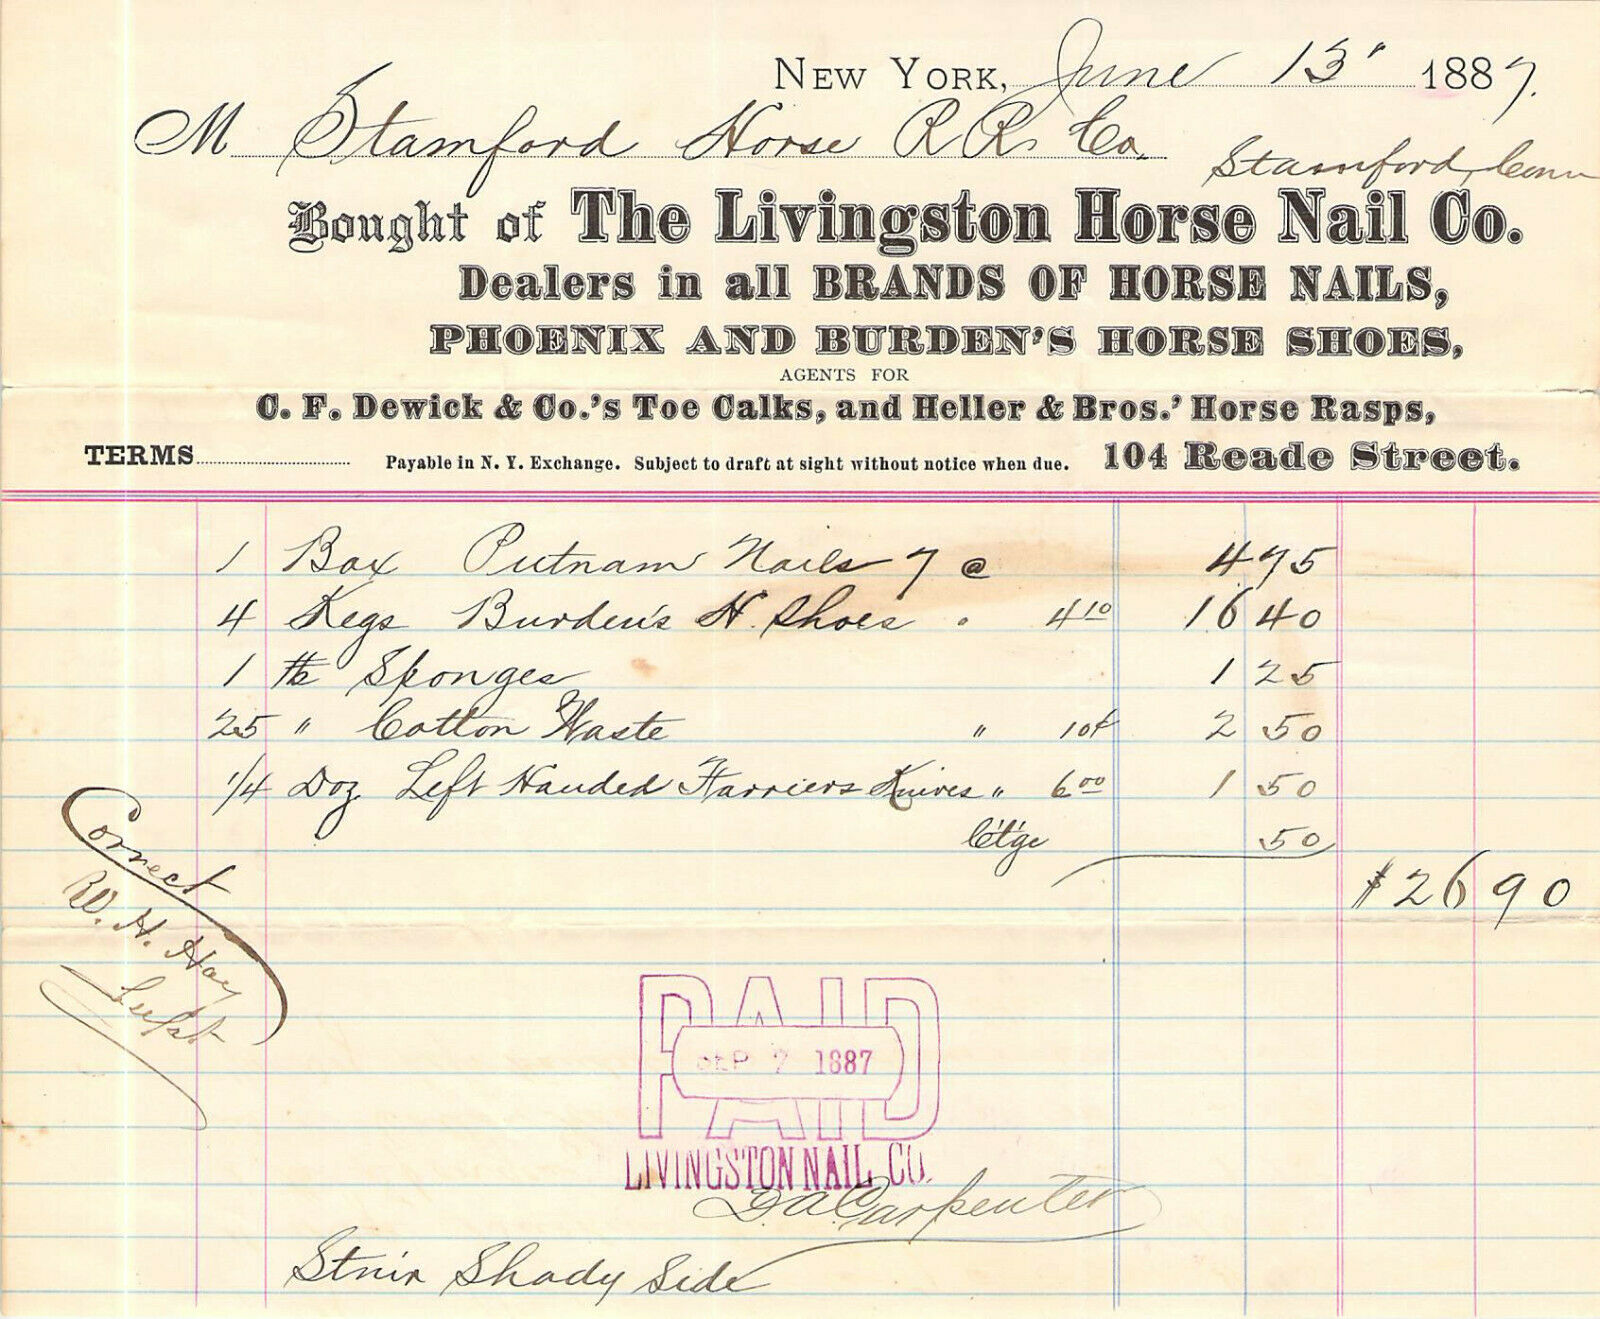 New York, June 13" 1887.
M Stamford Horse R R. Co. Stamford, Conn
Bought of The Livingston Horse Nail Co.
Dealers in all BRANDS OF HORSE NAILS,
PHOENIX AND BURDEN'S HORSE SHOES,
AGENTS FOR
C. F. Dewick & Co.'s Toe Calks, and Heller & Bros.' Horse Rasps,
TERMS Payable in N. Y. Exchange. Subject to draft at sight without notice when due. 104 Reade Street.
1 Box Putnam Nails 7 @ 4 75
4 Kegs Burden's H. Shoes " 4 10 16 40
1 lb Sponges 1 25
25 " Cotton Waste " 10¢ 2 50
1/4 Doz Left Handed Farriers Knives " 6 00 1 50
C't'ge 50
$26 90
Correct
W. H. Hay
Supt
PAID
SEP 7 1887
LIVINGSTON NAIL CO.
D. A. Carpenter
Stmr Shady Side